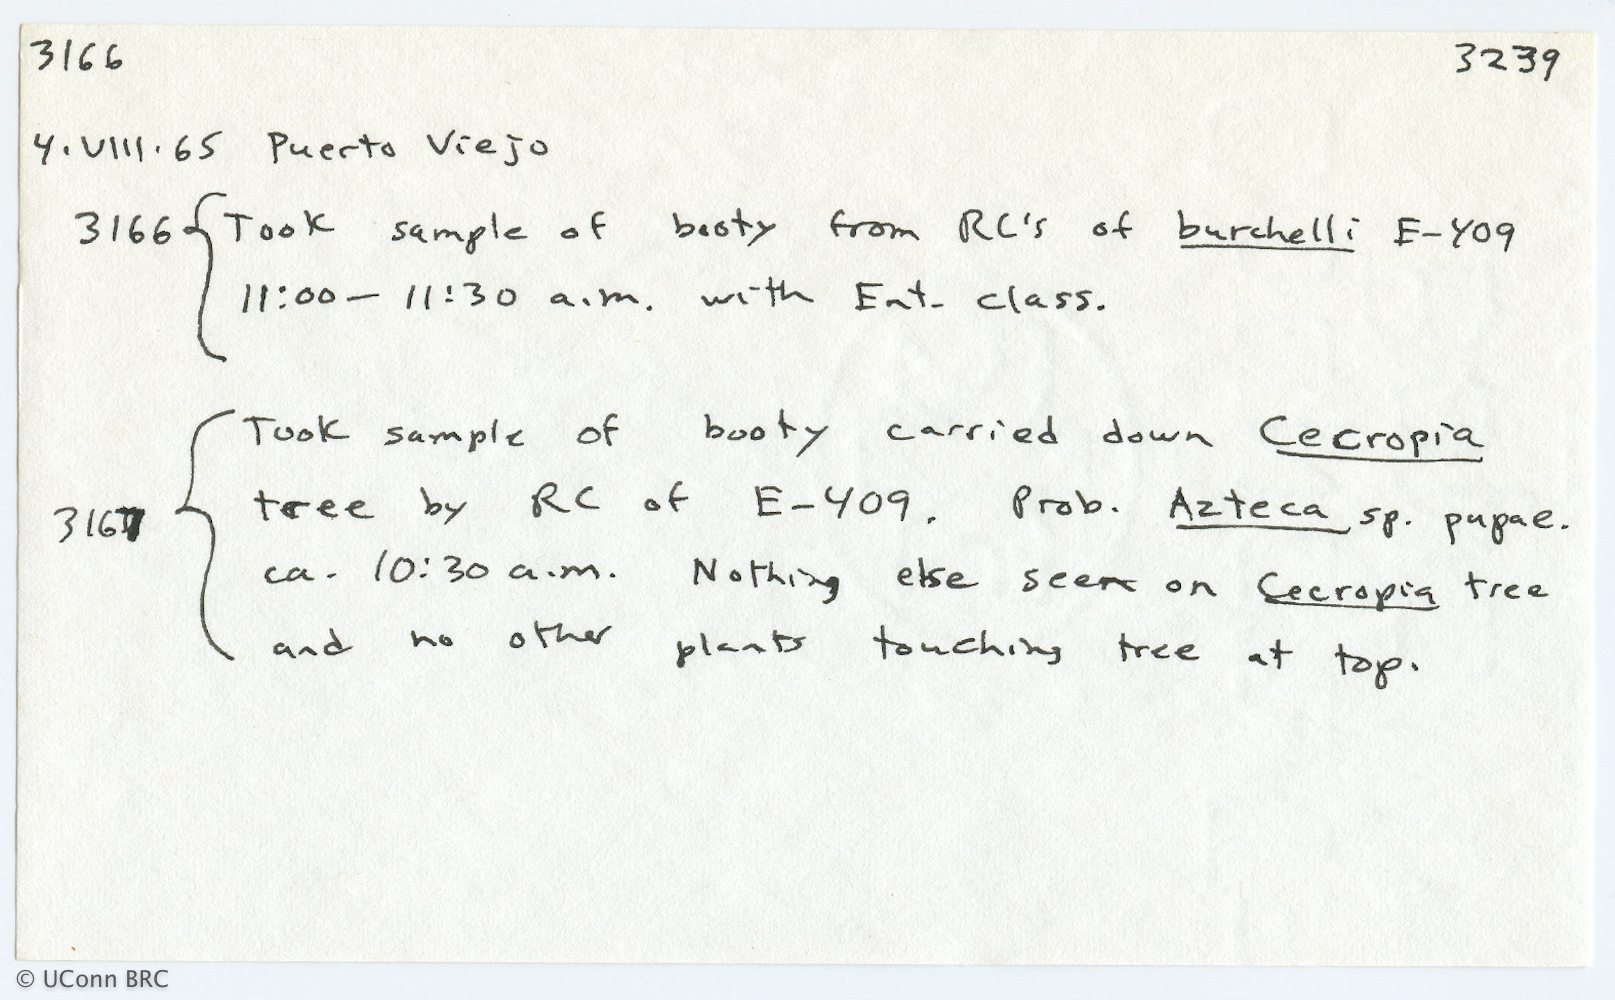 3166 3239
4.VIII.65 Puerto Viejo
3166 { Took sample of booty from RC's of burchelli E-409
11:00 - 11:30 a.m. with Ent. class.
Took sample of booty carried down Cecropia
tree by RC of E-409. Prob. Azteca sp. pupae.
3167 {
ca. 10:30 a.m. Nothing else seen on Cecropia tree
and no other plants touching tree at top.
© UConn BRC